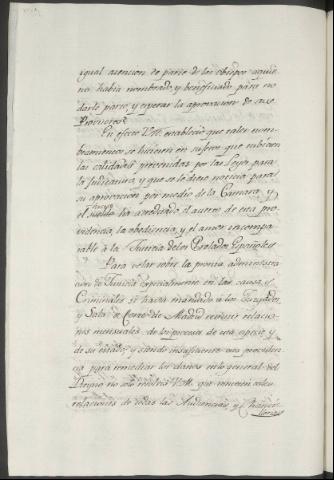 igual atencion de parte de los obispos a quie
nes habia nombrado, y beneficiado para no
darle parte, y esperar la aprovacion de sus
Provisores.
En efecto V.M. establecio que tales nom-
bramientos se hiciesen en sujetos que tubiesen
las calidades prevenidas por las Leyes para
la Judicatura, y que se le diese noticia para
su aprovacion por medio de la Camara, y
el suceso ha acreditado el acierto de esta pro
videncia, la obediencia, y el amor incompa
rable à la Justicia de los Prelados Españoles.
Para velar sobre la pronta administra
cion de Justicia especialmente en las causas
Criminales se havia mandado à los Juzgados,
y Sala de Corte de Madrid remitir relacio
nes mensuales de los procesos de esta especie, y
de su estado; y siendo insuficiente esta providen
cia para remediar los daños en lo general del
Reyno no solo resolvió V.M. que remitiesen iguales
relaciones de todas las Audiencias, y Chanci-
llerias